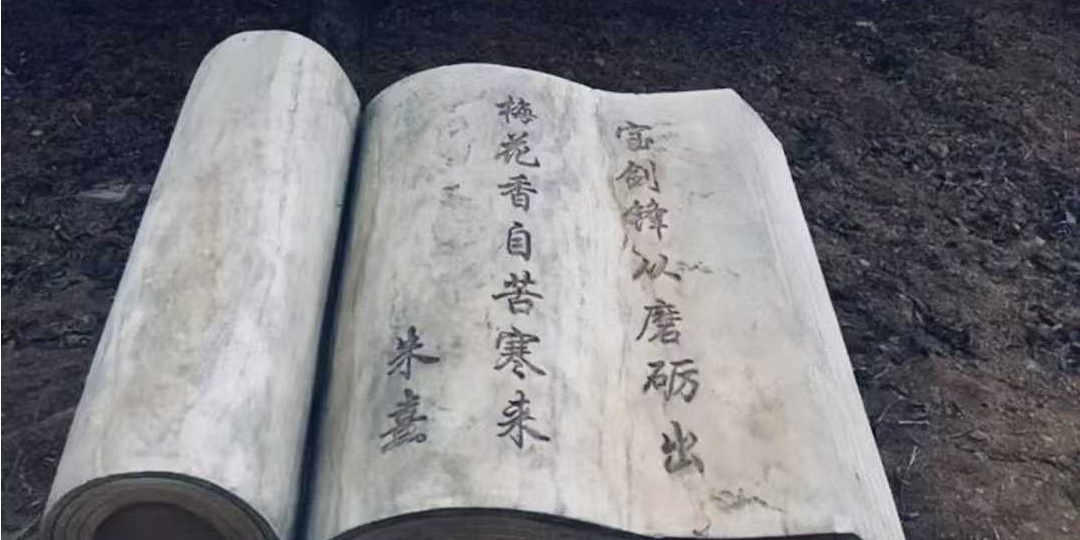 宝剑锋从磨砺出
梅花香自苦寒来
朱熹